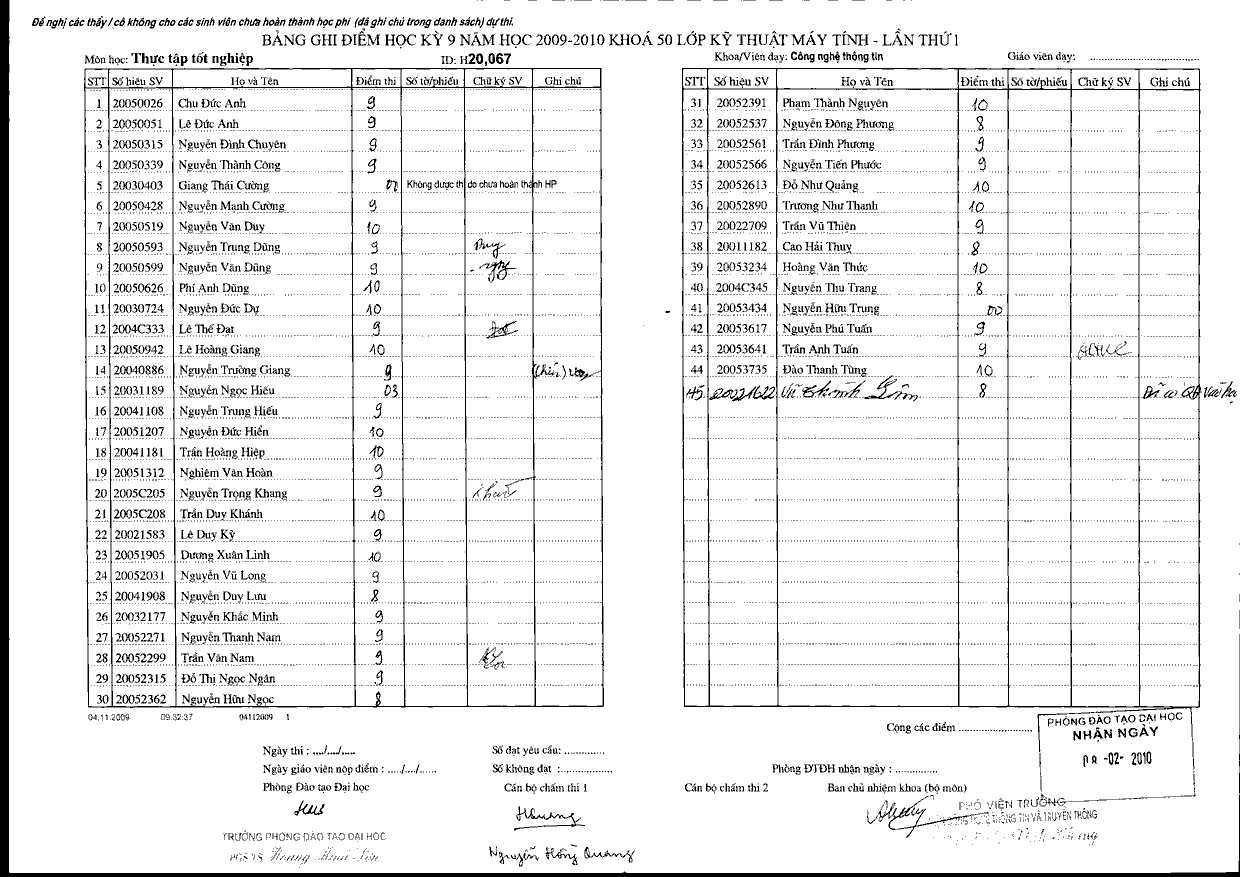 Đề nghị các thầy / cô không cho các sinh viên chưa hoàn thành học phí (đã ghi chú trong danh sách) dự thi.
BẢNG GHI ĐIỂM HỌC KỲ 9 NĂM HỌC 2009-2010 KHOÁ 50 LỚP KỸ THUẬT MÁY TÍNH - LẦN THỨ 1
Môn học: Thực tập tốt nghiệp ID: H20,067 Khoa/Viện dạy: Công nghệ thông tin Giáo viên dạy: ........................
STT Số hiệu SV Họ và Tên Điểm thi Số tờ/phiếu Chữ ký SV Ghi chú
1 20050026 Chu Đức Anh 9
2 20050051 Lê Đức Anh 9
3 20050315 Nguyễn Đình Chuyên 9
4 20050339 Nguyễn Thành Công 9
5 20030403 Giang Thái Cường Không được thi do chưa hoàn thành HP
6 20050428 Nguyễn Mạnh Cường 9
7 20050519 Nguyễn Văn Duy 10
8 20050593 Nguyễn Trung Dũng 9
9 20050599 Nguyễn Văn Dũng 9
10 20050626 Phí Anh Dũng 10
11 20030724 Nguyễn Đức Dự 10
12 2004C333 Lê Thế Đạt 9
13 20050942 Lê Hoàng Giang 10
14 20040886 Nguyễn Trường Giang 9
15 20031189 Nguyễn Ngọc Hiếu 03
16 20041108 Nguyễn Trung Hiếu 9
17 20051207 Nguyễn Đức Hiển 10
18 20041181 Trần Hoàng Hiệp 10
19 20051312 Nghiêm Văn Hoàn 9
20 2005C205 Nguyễn Trọng Khang 9
21 2005C208 Trần Duy Khánh 10
22 20021583 Lê Duy Kỳ 9
23 20051905 Dương Xuân Linh 10
24 20052031 Nguyễn Vũ Long 9
25 20041908 Nguyễn Duy Lưu 8
26 20032177 Nguyễn Khắc Minh 9
27 20052271 Nguyễn Thanh Nam 9
28 20052299 Trần Văn Nam 9
29 20052315 Đỗ Thị Ngọc Ngân 9
30 20052362 Nguyễn Hữu Ngọc 8
04.11.2009 09:32:37 04112009 1
STT Số hiệu SV Họ và Tên Điểm thi Số tờ/phiếu Chữ ký SV Ghi chú
31 20052391 Phạm Thành Nguyên 10
32 20052537 Nguyễn Đông Phương 8
33 20052561 Trần Đình Phương 9
34 20052566 Nguyễn Tiến Phước 9
35 20052613 Đỗ Như Quảng 10
36 20052890 Trương Như Thanh 10
37 20022709 Trần Vũ Thiên 9
38 20011182 Cao Hải Thuỵ 8
39 20053234 Hoàng Văn Thức 10
40 2004C345 Nguyễn Thu Trang 8
41 20053434 Nguyễn Hữu Trung 00
42 20053617 Nguyễn Phú Tuấn 9
43 20053641 Trần Anh Tuấn 9
44 20053735 Đào Thanh Tùng 10
45 20021622 Vũ 8 Đã có QĐ
Cộng các điểm ....................
PHÒNG ĐÀO TẠO ĐẠI HỌC
NHẬN NGÀY
-02- 2010
Ngày thi : ..../..../..... Số đạt yêu cầu: .............
Ngày giáo viên nộp điểm : ..../..../...... Số không đạt :................ Phòng ĐTĐH nhận ngày : .............
Phòng Đào tạo Đại học Cán bộ chấm thi 1 Cán bộ chấm thi 2 Ban chủ nhiệm khoa (bộ môn)
PHÓ VIỆN TRƯỞNG
THÔNG TIN VÀ TRUYỀN THÔNG
TRƯỞNG PHÒNG ĐÀO TẠO ĐẠI HỌC
Nguyễn Hồng Quang